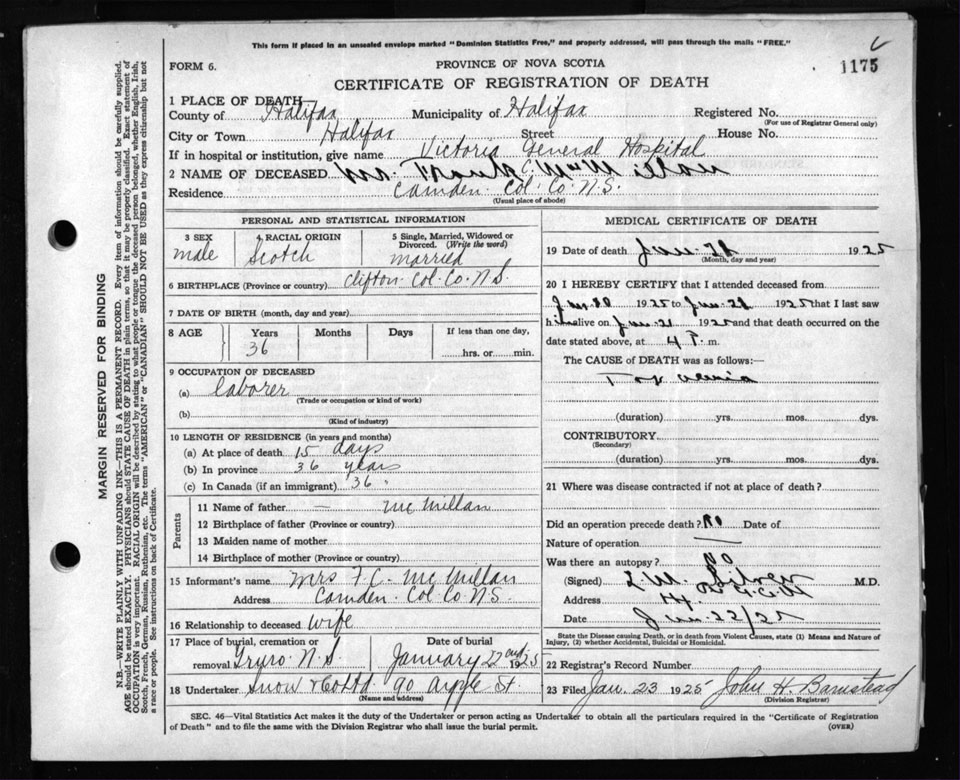 This form if placed in an unsealed envelope marked "Dominion Statistics Free," and properly addressed, will pass through the mails "FREE."
FORM 6.
PROVINCE OF NOVA SCOTIA
1175
CERTIFICATE OF REGISTRATION OF DEATH
1 PLACE OF DEATH
County of Halifax Municipality of Halifax Registered No.
(For use of Registrar General only)
City or Town Halifax Street House No.
If in hospital or institution, give name Victoria General Hospital
2 NAME OF DECEASED Mr. Frank C. McMillan
Residence Camden Col. Co. N.S.
(Usual place of abode)
PERSONAL AND STATISTICAL INFORMATION
3 SEX 4 RACIAL ORIGIN 5 Single, Married, Widowed or Divorced. (Write the word)
male Scotch married
6 BIRTHPLACE (Province or country) Clifton Col. Co. N.S.
7 DATE OF BIRTH (month, day and year)
8 AGE Years Months Days If less than one day,
36 hrs. or min.
9 OCCUPATION OF DECEASED
(a) laborer
(Trade or occupation or kind of work)
(b)
(Kind of industry)
10 LENGTH OF RESIDENCE (in years and months)
(a) At place of death 15 days
(b) In province 36 years
(c) In Canada (if an immigrant) 36 "
Parents
11 Name of father — McMillan
12 Birthplace of father (Province or country)
13 Maiden name of mother
14 Birthplace of mother (Province or country)
15 Informant's name Mrs F. C. McMillan
Address Camden Col. Co. N.S.
16 Relationship to deceased wife
17 Place of burial, cremation or removal Truro N.S. Date of burial January 22nd 1925
18 Undertaker Snow & Co Ltd 90 Argyle St.
(Name and address)
MEDICAL CERTIFICATE OF DEATH
19 Date of death Jan. 21 1925
(Month, day and year)
20 I HEREBY CERTIFY that I attended deceased from
Jan. 1925 to Jan. 21 1925 that I last saw
him alive on Jan. 21 1925 and that death occurred on the
date stated above, at 4 P. m.
The CAUSE of DEATH was as follows:—
Toxaemia
(duration) yrs. mos. dys.
CONTRIBUTORY
(Secondary)
(duration) yrs. mos. dys.
21 Where was disease contracted if not at place of death?
Did an operation precede death? No Date of
Nature of operation —
Was there an autopsy? No
(Signed) M.D.
Address
Date Jan. 22/25
State the Disease causing Death, or in death from Violent Causes, state (1) Means and Nature of Injury, (2) whether Accidental, Suicidal or Homicidal.
22 Registrar's Record Number
23 Filed Jan. 23 1925 John H. Barnstead
(Division Registrar)
SEC. 46—Vital Statistics Act makes it the duty of the Undertaker or person acting as Undertaker to obtain all the particulars required in the "Certificate of Registration
of Death" and to file the same with the Division Registrar who shall issue the burial permit. (OVER)
MARGIN RESERVED FOR BINDING
N.B.—WRITE PLAINLY WITH UNFADING INK—THIS IS A PERMANENT RECORD. Every item of information should be carefully supplied.
AGE should be stated EXACTLY. PHYSICIANS should STATE CAUSE OF DEATH in plain terms, so that it may be properly classified. Exact statement of
OCCUPATION is very important. RACIAL ORIGIN will be described by stating to what people or tongue the deceased person belonged, whether English, Irish,
Scotch, French, German, Russian, Ruthenian, etc. The terms "AMERICAN" or "CANADIAN" SHOULD NOT BE USED as they express citizenship but not
a race or people. See instructions on back of Certificate.